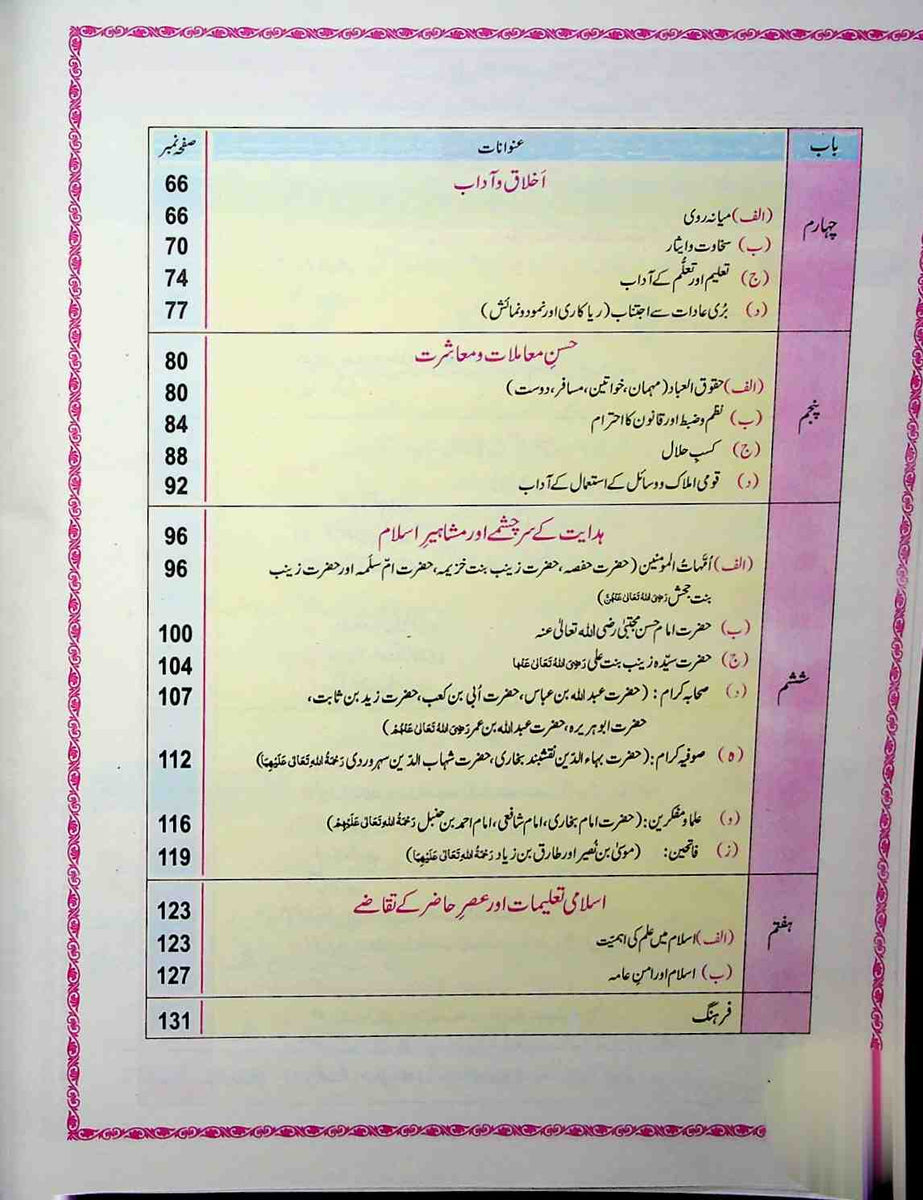 باب عنوانات صفحہ نمبر
چہارم
اَخلاق و آداب 66
(الف) میانہ روی 66
(ب) سخاوت و ایثار 70
(ج) تعلیم اور تعلُّم کے آداب 74
(د) بُری عادات سے اجتناب (ریا کاری اور نمود و نمائش) 77
پنجم
حسنِ معاملات و معاشرت 80
(الف) حقوق العباد (مہمان، خواتین، مسافر، دوست) 80
(ب) نظم و ضبط اور قانون کا احترام 84
(ج) کسبِ حلال 88
(د) قومی املاک و وسائل کے استعمال کے آداب 92
ششم
ہدایت کے سرچشمے اور مشاہیرِ اسلام 96
(الف) اُمَّہاتُ المومنین (حضرت حفصہ، حضرت زینب بنت خزیمہ، حضرت امّ سلَمہ اور حضرت زینب 96
بنت جحش رَضِیَ اللہُ تَعَالٰی عَنْہُنَّ)
(ب) حضرت امام حسن مجتبیٰ رضی اللہ تعالیٰ عنہ 100
(ج) حضرت سیّدہ زینب بنت علی رَضِیَ اللہُ تَعَالٰی عَنْہا 104
(د) صحابہ کرام: (حضرت عبداللہ بن عباس، حضرت اُبی بن کعب، حضرت زید بن ثابت، 107
حضرت ابوہریرہ، حضرت عبداللہ بن عمر رَضِیَ اللہُ تَعَالٰی عَنْہُمْ)
(ہ) صوفیہ کرام: (حضرت بہاء الدّین نقشبند بخاری، حضرت شہاب الدّین سہروردی رَحْمَۃُ اللہِ تَعَالٰی عَلَیْہِمَا) 112
(و) علما و مفکرین: (حضرت امام بخاری، امام شافعی، امام احمد بن حنبل رَحْمَۃُ اللہِ تَعَالٰی عَلَیْہِمْ) 116
(ز) فاتحین: (موسیٰ بن نُصیر اور طارق بن زیاد رَحْمَۃُ اللہِ تَعَالٰی عَلَیْہِمَا) 119
ہفتم
اسلامی تعلیمات اور عصرِ حاضر کے تقاضے 123
(الف) اسلام میں علم کی اہمیّت 123
(ب) اسلام اور امنِ عامہ 127
فرہنگ 131